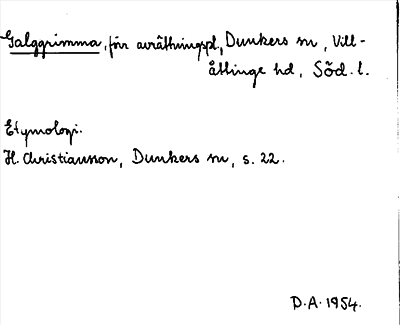 Galggrimma, för avrättningspl, Dunkers sn, Vill-
åttinge hd, Söd. l.
Etymologi.
H. Christiansson, Dunkers sn, s. 22.
D.A. 1954.